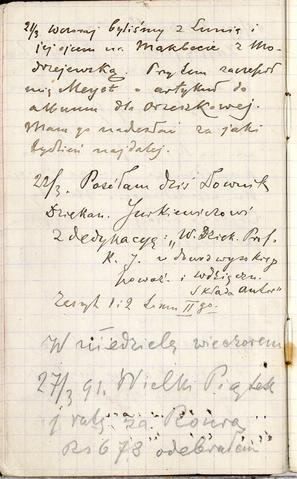 21/3 Wczoraj byliśmy z Lunią i
jej ojcem na Makbecie z Mo-
drzejewską. Prytem zaczepił
mię Meyet o artykuł do
albumu dla Orzeszkowej.
Mam go nadesłać za jaki
tydzień najdalej.
22/3. Posłałem dziś Słownik
Dziekan. Jurkiewiczowi
z dedykacyą: „W. Dziek. Prof.
K. J. w dowód wysokiego
poważ. i wdzięczn.
składa autor"
Zeszyt 1 i 2 tomu II go.
W niedzielę wieczorem
27/3 91. Wielki Piątek
j raty za
Rs 678 odebrałem